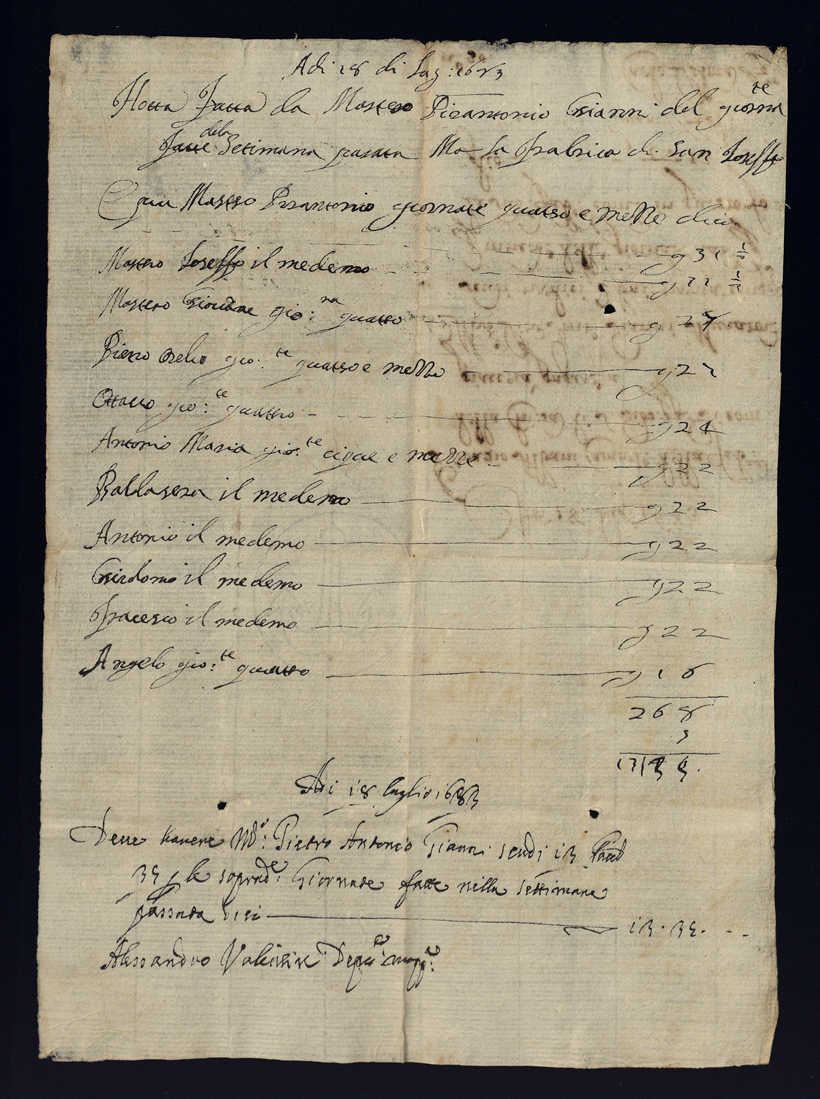 Adi 18 di Lug: 1683
Notta Fatta da Mastero Pierantonio Gianni del giorna te
Fatte dela Setimana pasata Per la Frabrica di San Ioseffe
E piu Mastro Pierantonio giornate quatro e meze dico
g 31 1/2
Mastro Ioseffo il medemo g 31 1/2
Mastero gio: na quatro g 28
Pietro gio: te quatro e mezze g 27
gio: te quatro g 24
Antonio Maria gio: te e mezze g 22
Baldasera il medemo g 22
Antonio il medemo g 22
Girolomo il medemo g 22
Fracesco il medemo g 22
Angelo gio: te quatro g 16
268
5
13
Adi 18 luglio 1683
Deve havere Mro: Pietro Antonio Gianni scudi 13
35 p le soprade: Giornate fatte nella settimana
passata dico 13.35.
Alessandro Depu: